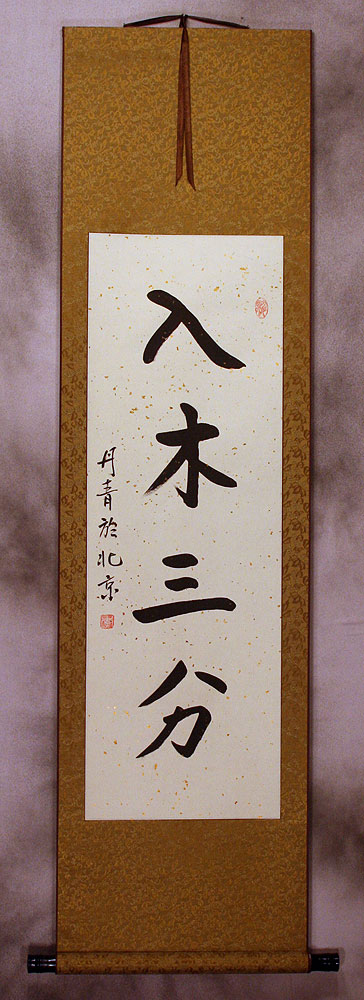 入木三分
丹青於北京